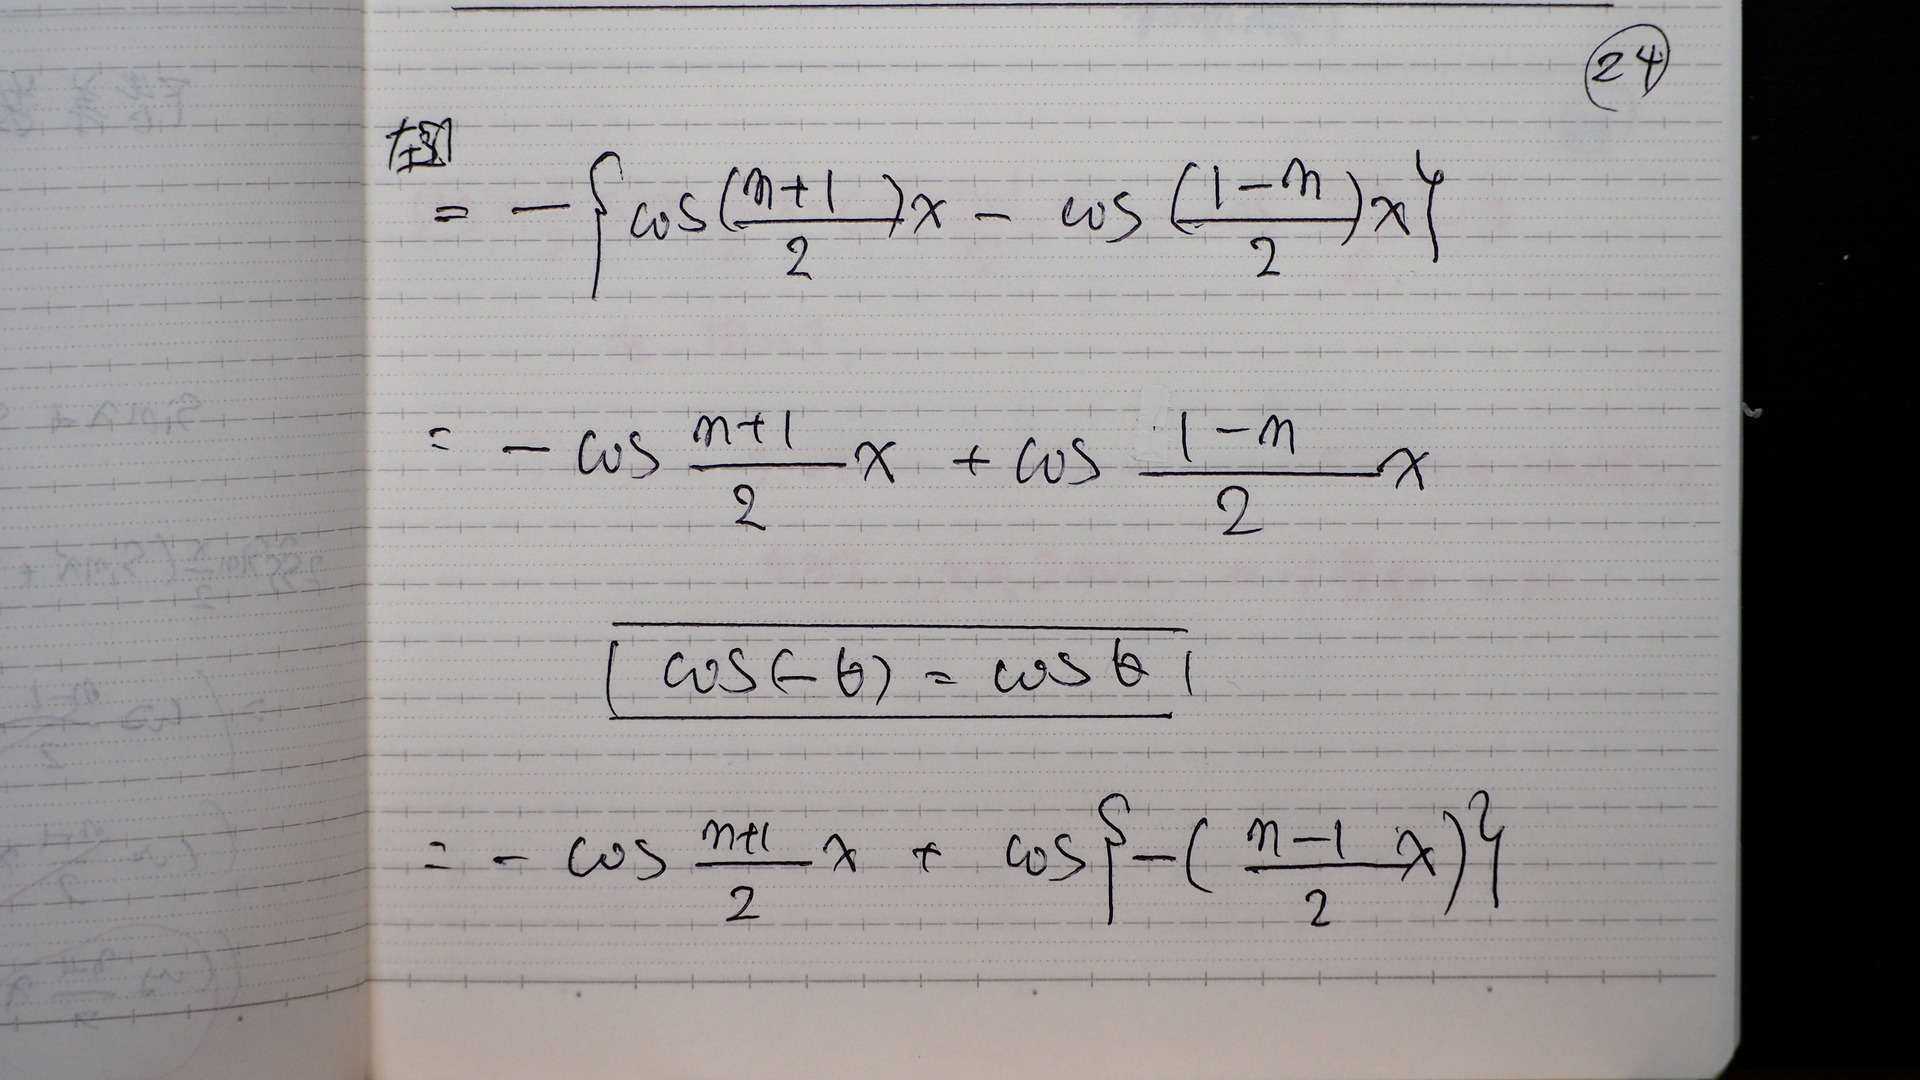 24
= -{cos(n+1/2)x - cos(1-n/2)x}
= - cos n+1/2 x + cos 1-n/2 x
cos(-θ) = cosθ
= - cos n+1/2 x + cos{-(n-1/2 x)}